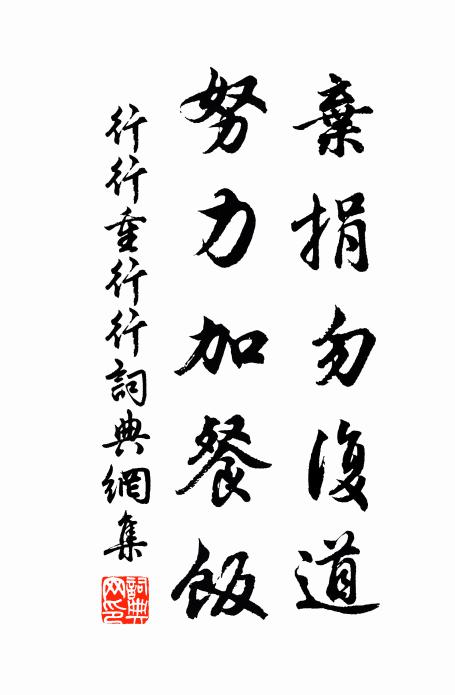 棄捐勿復道
努力加餐飯
行行重行行詞典網集
詞典网印